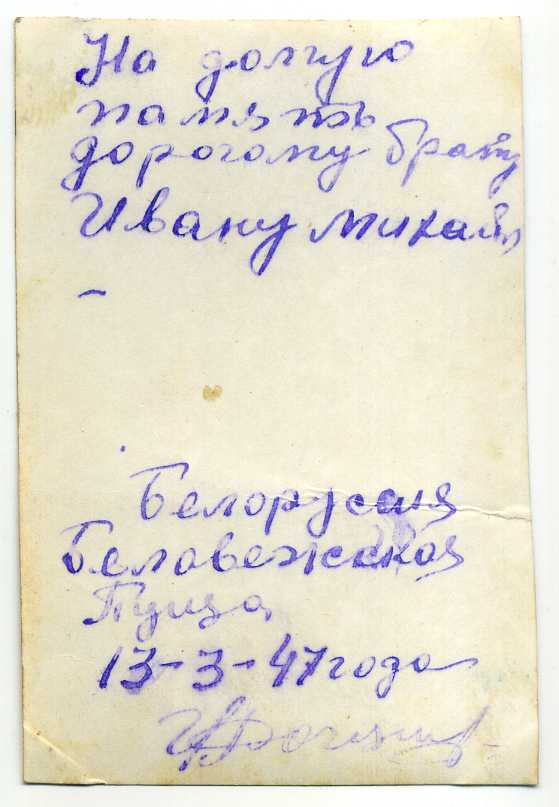 На долгую
память
дорогому брату
Ивану Михайл
-
Белоруссия
Беловежская
Пуща
13-3-47 года